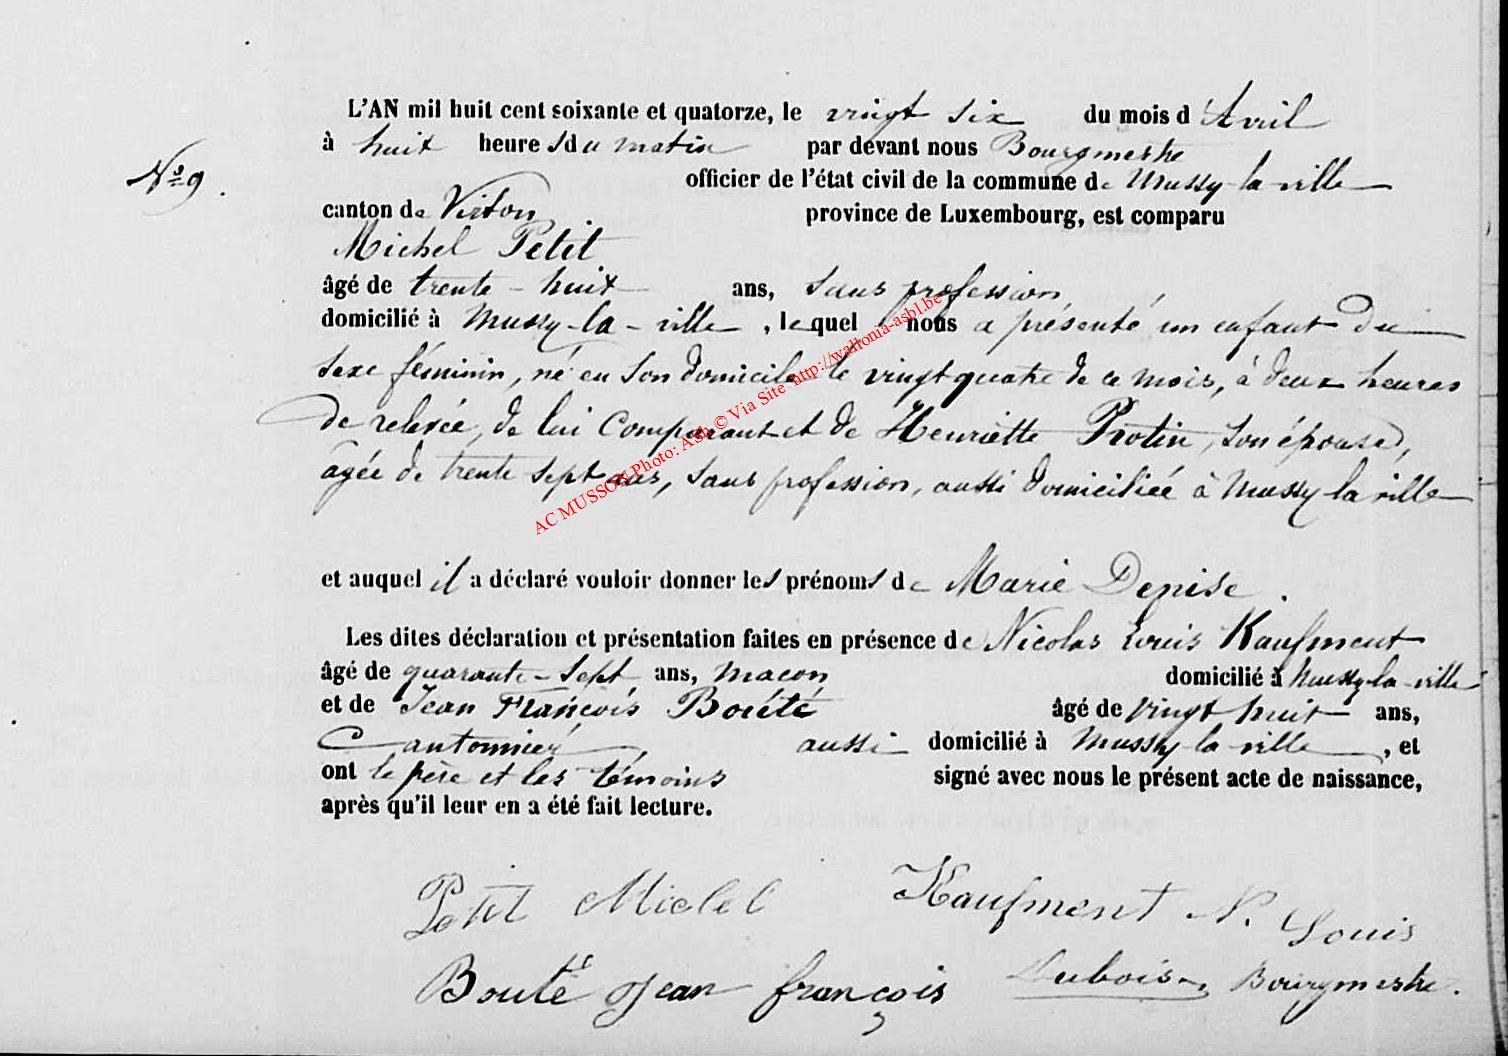 L'AN mil huit cent soixante et quatorze, le vingt six du mois d'Avril
à huit heures du matin par devant nous Bourgmestre
N° 9.
officier de l'état civil de la commune de Mussy-la-ville
canton de Virton province de Luxembourg, est comparu
Michel Petit
âgé de trente-huit ans, sans profession,
domicilié à Mussy-la-ville, lequel nous a présenté un enfant du
sexe féminin, né en son domicile le vingt quatre de ce mois, à deux heures
de relevée, de lui Comparant et de Henriette Protin, son épouse,
âgée de trente sept ans, sans profession, aussi domiciliée à Mussy-la-ville
AC MUSSON Photo: Asb © Via Site http://wallonia-asbl.be
et auquel il a déclaré vouloir donner les prénoms de Marie Denise.
Les dites déclaration et présentation faites en présence de Nicolas Louis Kaufment
âgé de quarante-sept ans, maçon domicilié à Mussy-la-ville
et de Jean François Bouté âgé de vingt huit ans,
Cantonnier, aussi domicilié à Mussy-la-ville, et
ont le père et les témoins signé avec nous le présent acte de naissance,
après qu'il leur en a été fait lecture.
Petit Michel Kaufment N. Louis
Bouté Jean françois Dubois, Bourgmestre.